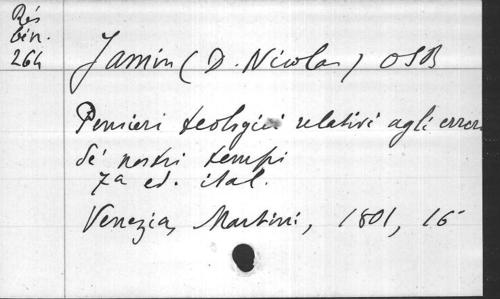 Rés
bén.
264
Jamin (D. Nicolas) OSB
Pensieri teologici relativi agli errori
de' nostri tempi
7a ed. ital.
Venezia, Martini, 1801, 16-